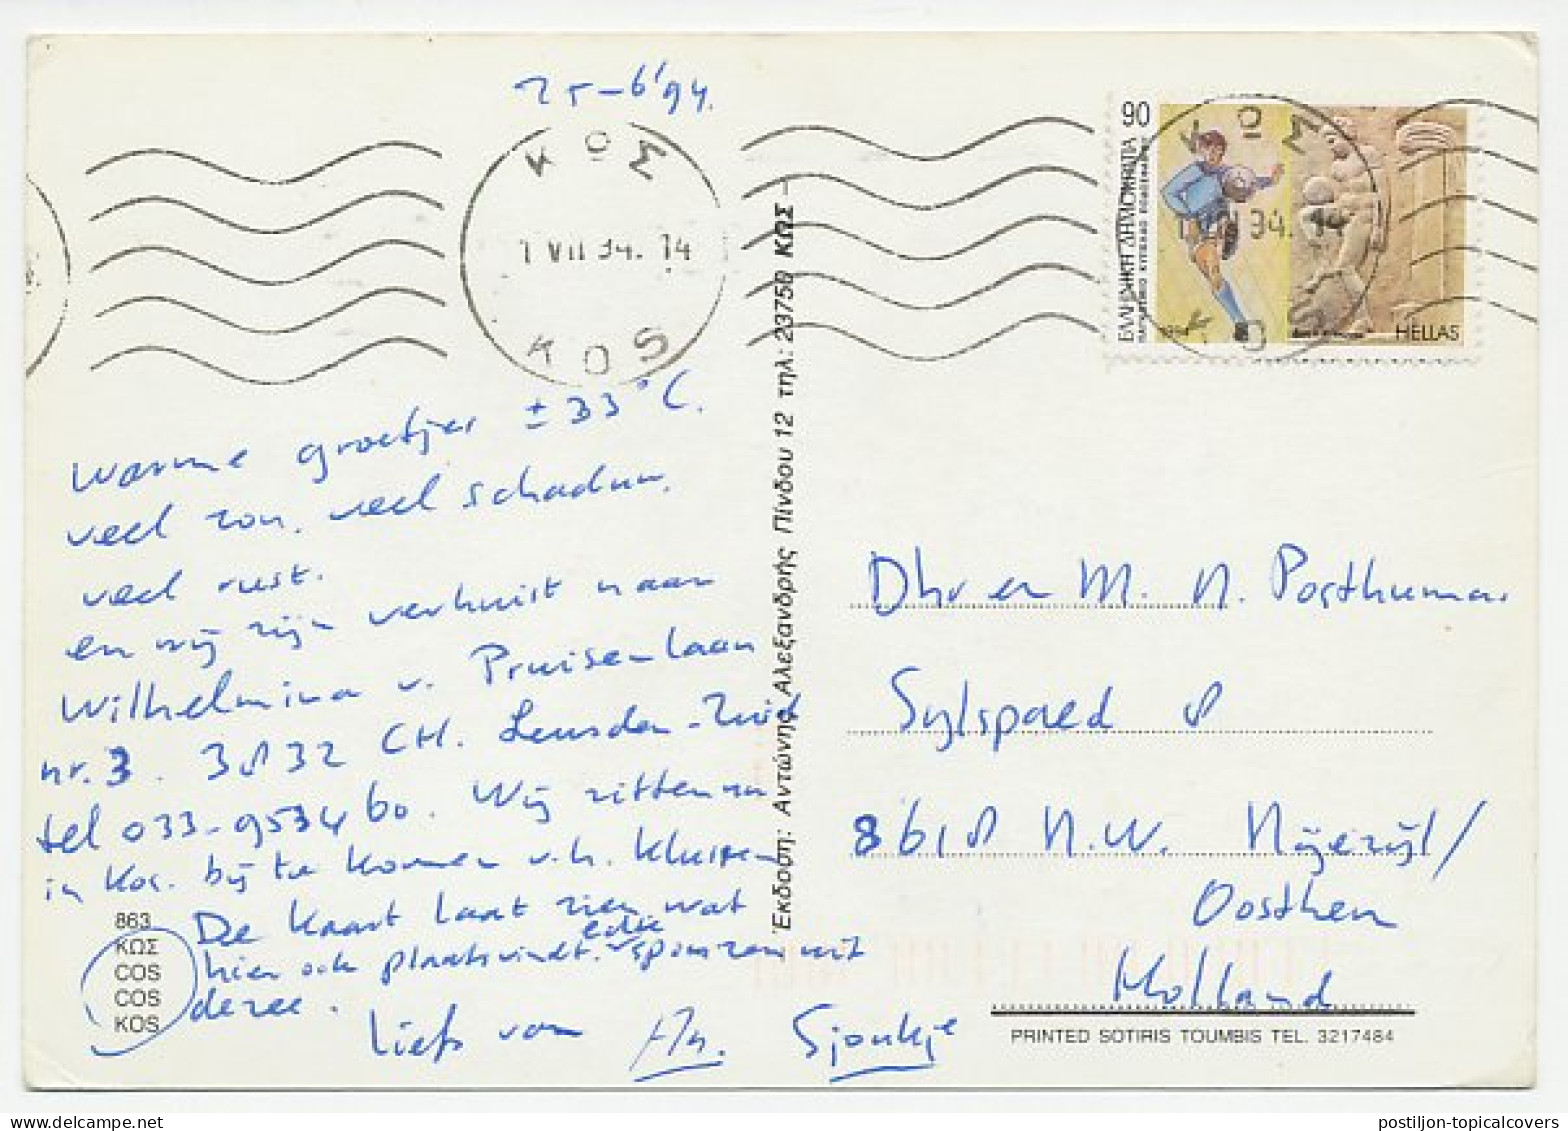 25-6'94.
ΚΩΣ
1 VII 94. 14
KOS
90
ΕΛΛΗΝΙΚΗ ΔΗΜΟΚΡΑΤΙΑ
1994
HELLAS
ΚΩΣ
94. 14
KOS
Warme groetjes ± 33°C.
veel zon. veel schaduw.
veel rust.
en wij zijn verhuist naar
Wilhelmina v. Pruisenlaan
nr. 3. 3832 CH. Leusden-Zuid
tel 033-953460. Wij zitten nu
in Kos. bij te komen v.h. klussen
De kaart laat zien wat
hier ook plaatsvindt. echte sponzen uit
de zee.
Liefs van An. Sjoukje
863
ΚΩΣ
COS
COS
KOS
Έκδοση: Αντώνης Αλεξανδρής Πίνδου 12 τηλ: 23750 ΚΩΣ
Dhr en M. N. Posthumas
Sylspaed 8
8618 N.W. Nijezijl/
Oosthem
Holland
PRINTED SOTIRIS TOUMBIS TEL. 3217484
postiljon-topicalcovers